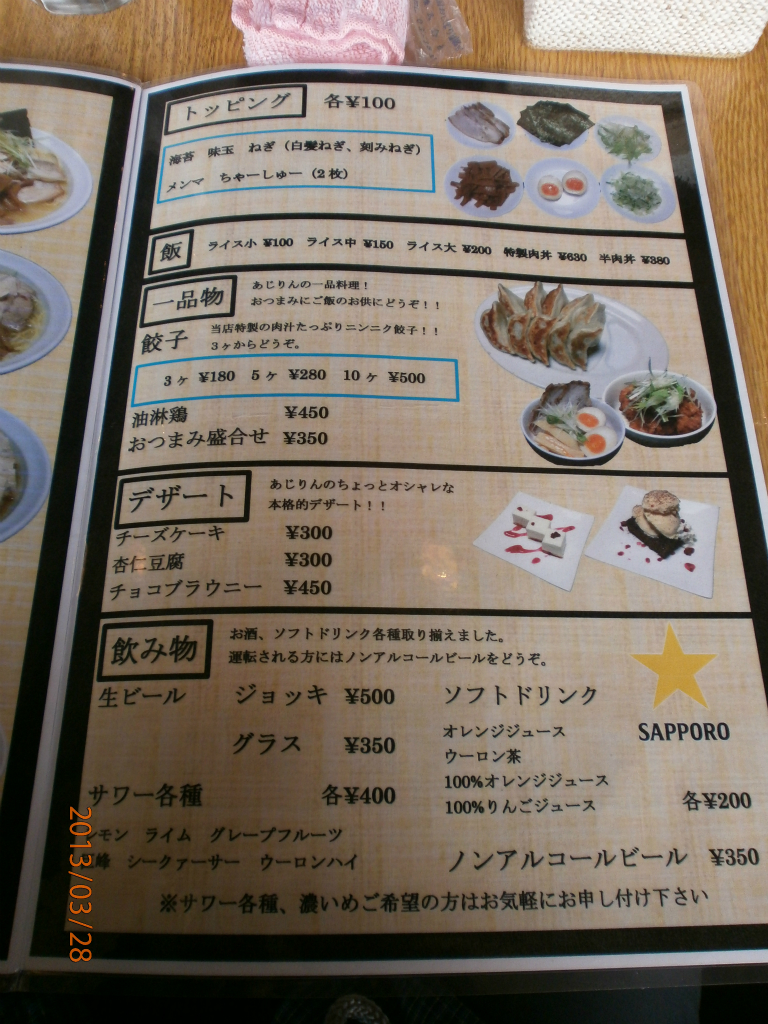 トッピング 各¥100
海苔 味玉 ねぎ(白髪ねぎ、刻みねぎ)
メンマ ちゃーしゅー(2枚)
飯 ライス小 ¥100 ライス中 ¥150 ライス大 ¥200 特製肉丼 ¥630 半肉丼 ¥380
一品物
あじりんの一品料理!
おつまみにご飯のお供にどうぞ!!
餃子
当店特製の肉汁たっぷりニンニク餃子!!
3ヶからどうぞ。
3ヶ ¥180 5ヶ ¥280 10ヶ ¥500
油淋鶏 ¥450
おつまみ盛合せ ¥350
デザート
あじりんのちょっとオシャレな
本格的デザート!!
チーズケーキ ¥300
杏仁豆腐 ¥300
チョコブラウニー ¥450
飲み物
お酒、ソフトドリンク各種取り揃えました。
運転される方にはノンアルコールビールをどうぞ。
生ビール ジョッキ ¥500
グラス ¥350
サワー各種 各¥400
レモン ライム グレープフルーツ
峰 シークァーサー ウーロンハイ
ソフトドリンク
オレンジジュース
ウーロン茶
100%オレンジジュース
100%りんごジュース 各¥200
ノンアルコールビール ¥350
SAPPORO
※サワー各種、濃いめご希望の方はお気軽にお申し付け下さい
2013/03/28